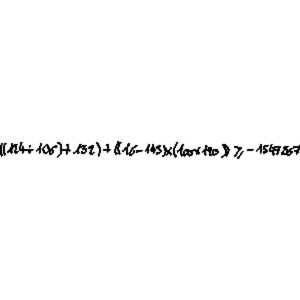 ((124÷106)+132)+((16-143)×(100×120)) ≥ -1549267